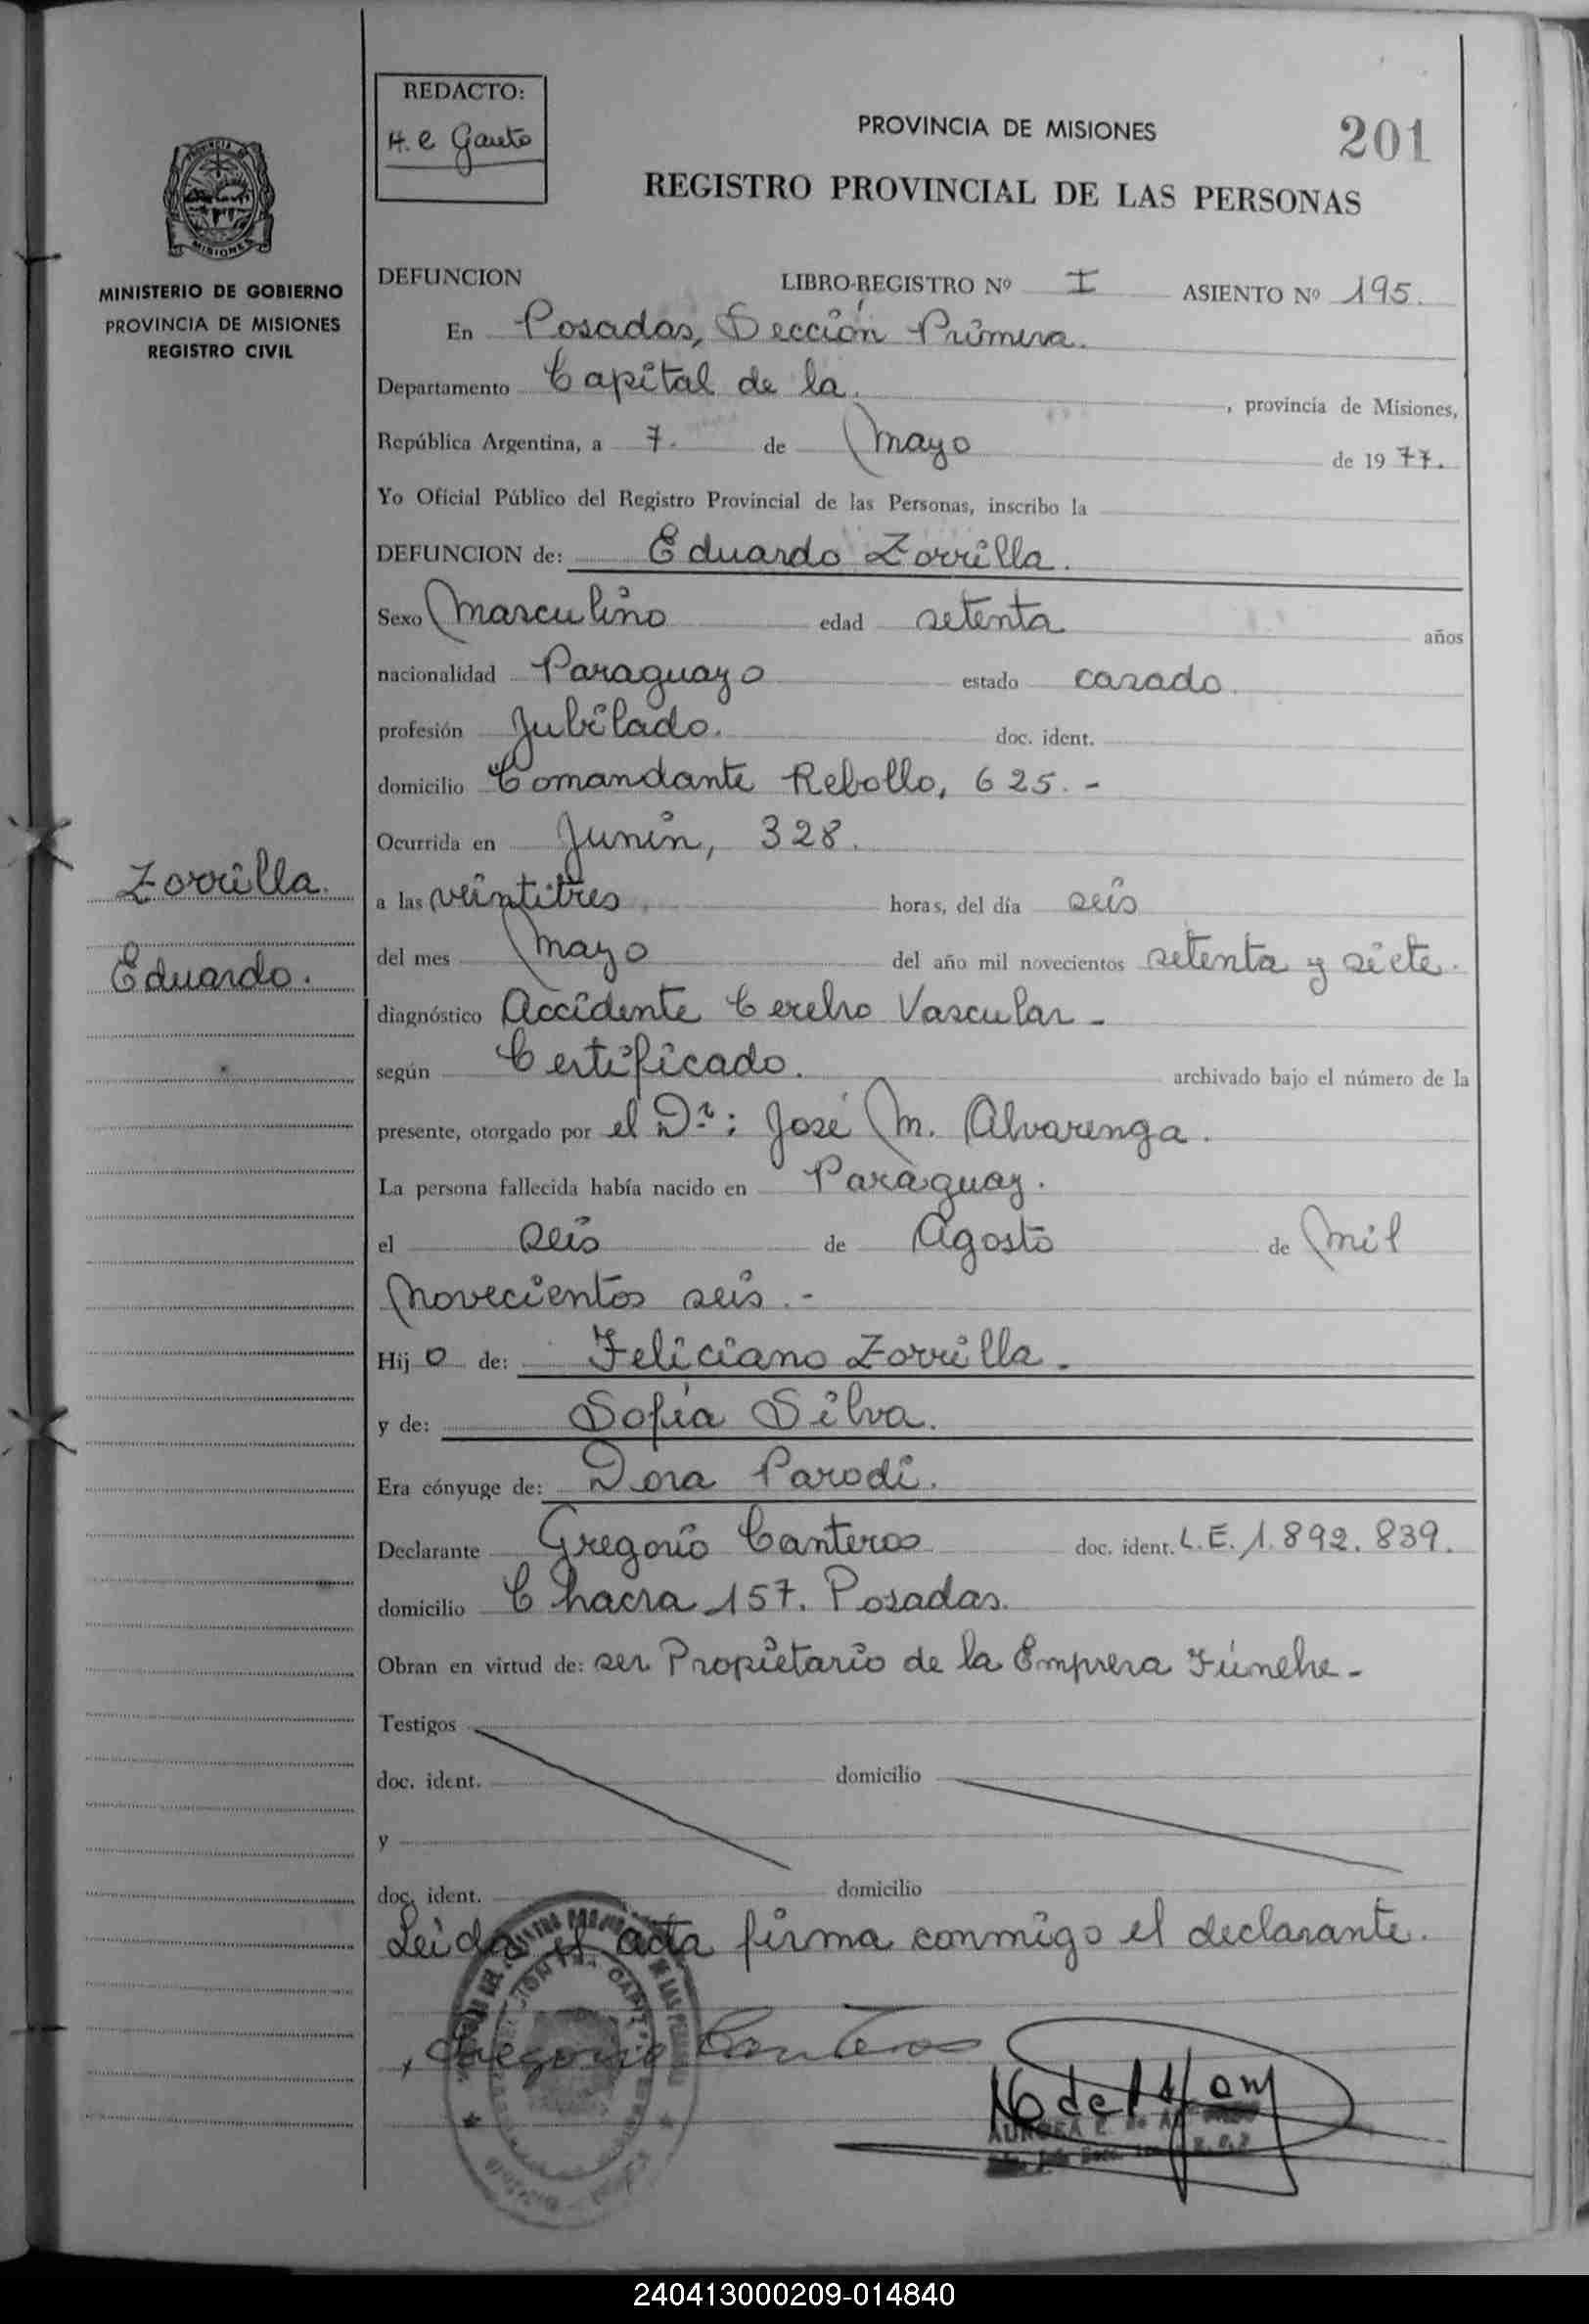 REDACTO:
H. C Gauto
PROVINCIA DE MISIONES
201
REGISTRO PROVINCIAL DE LAS PERSONAS
PROVINCIA DE
MISIONES
MINISTERIO DE GOBIERNO
PROVINCIA DE MISIONES
REGISTRO CIVIL
DEFUNCION LIBRO-REGISTRO Nº I ASIENTO Nº 195.
En Posadas, Sección Primera.
Departamento Capital de la. , provincia de Misiones,
República Argentina, a 7. de Mayo de 1977.
Yo Oficial Público del Registro Provincial de las Personas, inscribo la
DEFUNCION de: Eduardo Zorrilla.
Sexo Masculino edad setenta años
nacionalidad Paraguayo estado casado.
profesión Jubilado. doc. ident.
domicilio Comandante Rebollo, 625.-
Ocurrida en Junín, 328.
Zorrilla.
a las veintitres horas, del día seis
Eduardo.
del mes Mayo del año mil novecientos setenta y siete.
diagnóstico Accidente Cerebro Vascular-
según Certificado. archivado bajo el número de la
presente, otorgado por el Dr: José M. Alvarenga.
La persona fallecida había nacido en Paraguay.
el seis de Agosto de Mil
Novecientos seis.-
Hijo de: Feliciano Zorrilla.
y de: Sofía Silva.
Era cónyuge de: Dora Parodi.
Declarante Gregorio Canteros doc. ident. L.E. 1.892.839.
domicilio Chacra 157. Posadas.
Obran en virtud de: ser Propietario de la Empresa Fúnebre-
Testigos
doc. ident. domicilio
y
doc. ident. domicilio
Leida el acta firma conmigo el declarante.
Gregorio Canteros
240413000209-014840